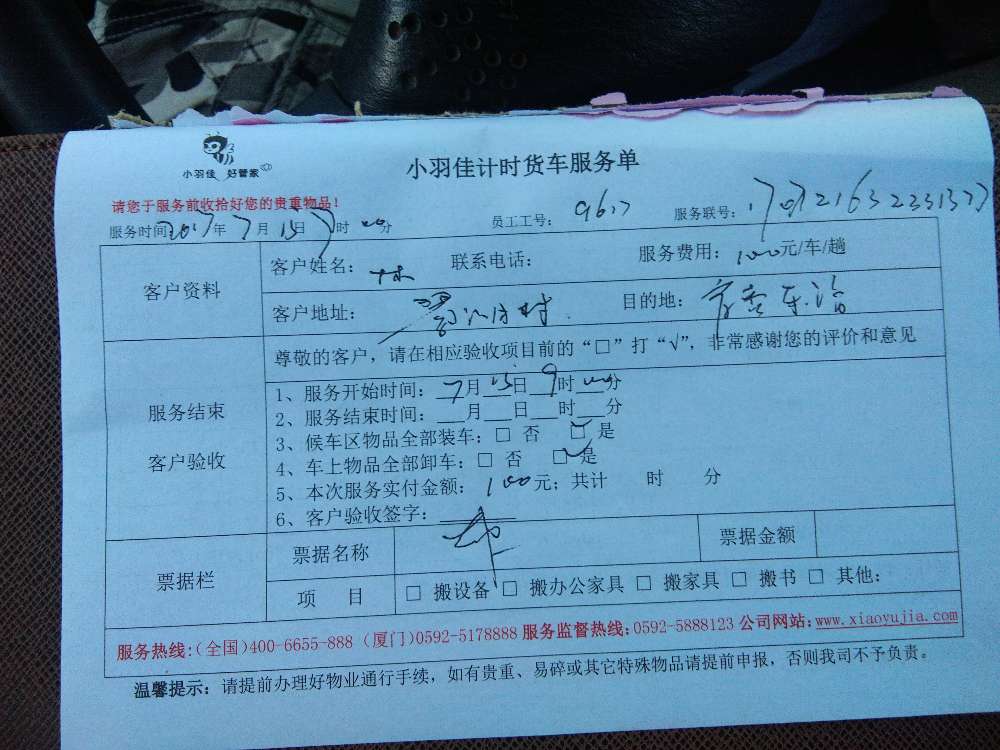 小羽佳 好管家
小羽佳计时货车服务单
请您于服务前收拾好您的贵重物品!
服务时间2017年7月15日 时 分 员工工号: 9617 服务联号:
客户资料 客户姓名: 林 联系电话: 服务费用: 100元/车/趟
客户地址: 目的地:
尊敬的客户，请在相应验收项目前的“□”打“√”，非常感谢您的评价和意见
服务结束
客户验收
1、服务开始时间: 7月15日9时00分
2、服务结束时间: ___月___日___时___分
3、候车区物品全部装车: □ 否 □ 是
4、车上物品全部卸车: □ 否 □ 是
5、本次服务实付金额: 100元; 共计 时 分
6、客户验收签字:
票据栏 票据名称 票据金额
项 目 □ 搬设备 □ 搬办公家具 □ 搬家具 □ 搬书 □ 其他:
服务热线:(全国)400-6655-888 (厦门)0592-5178888 服务监督热线:0592-5888123 公司网站:www.xiaoyujia.com
温馨提示: 请提前办理好物业通行手续，如有贵重、易碎或其它特殊物品请提前申报，否则我司不予负责。